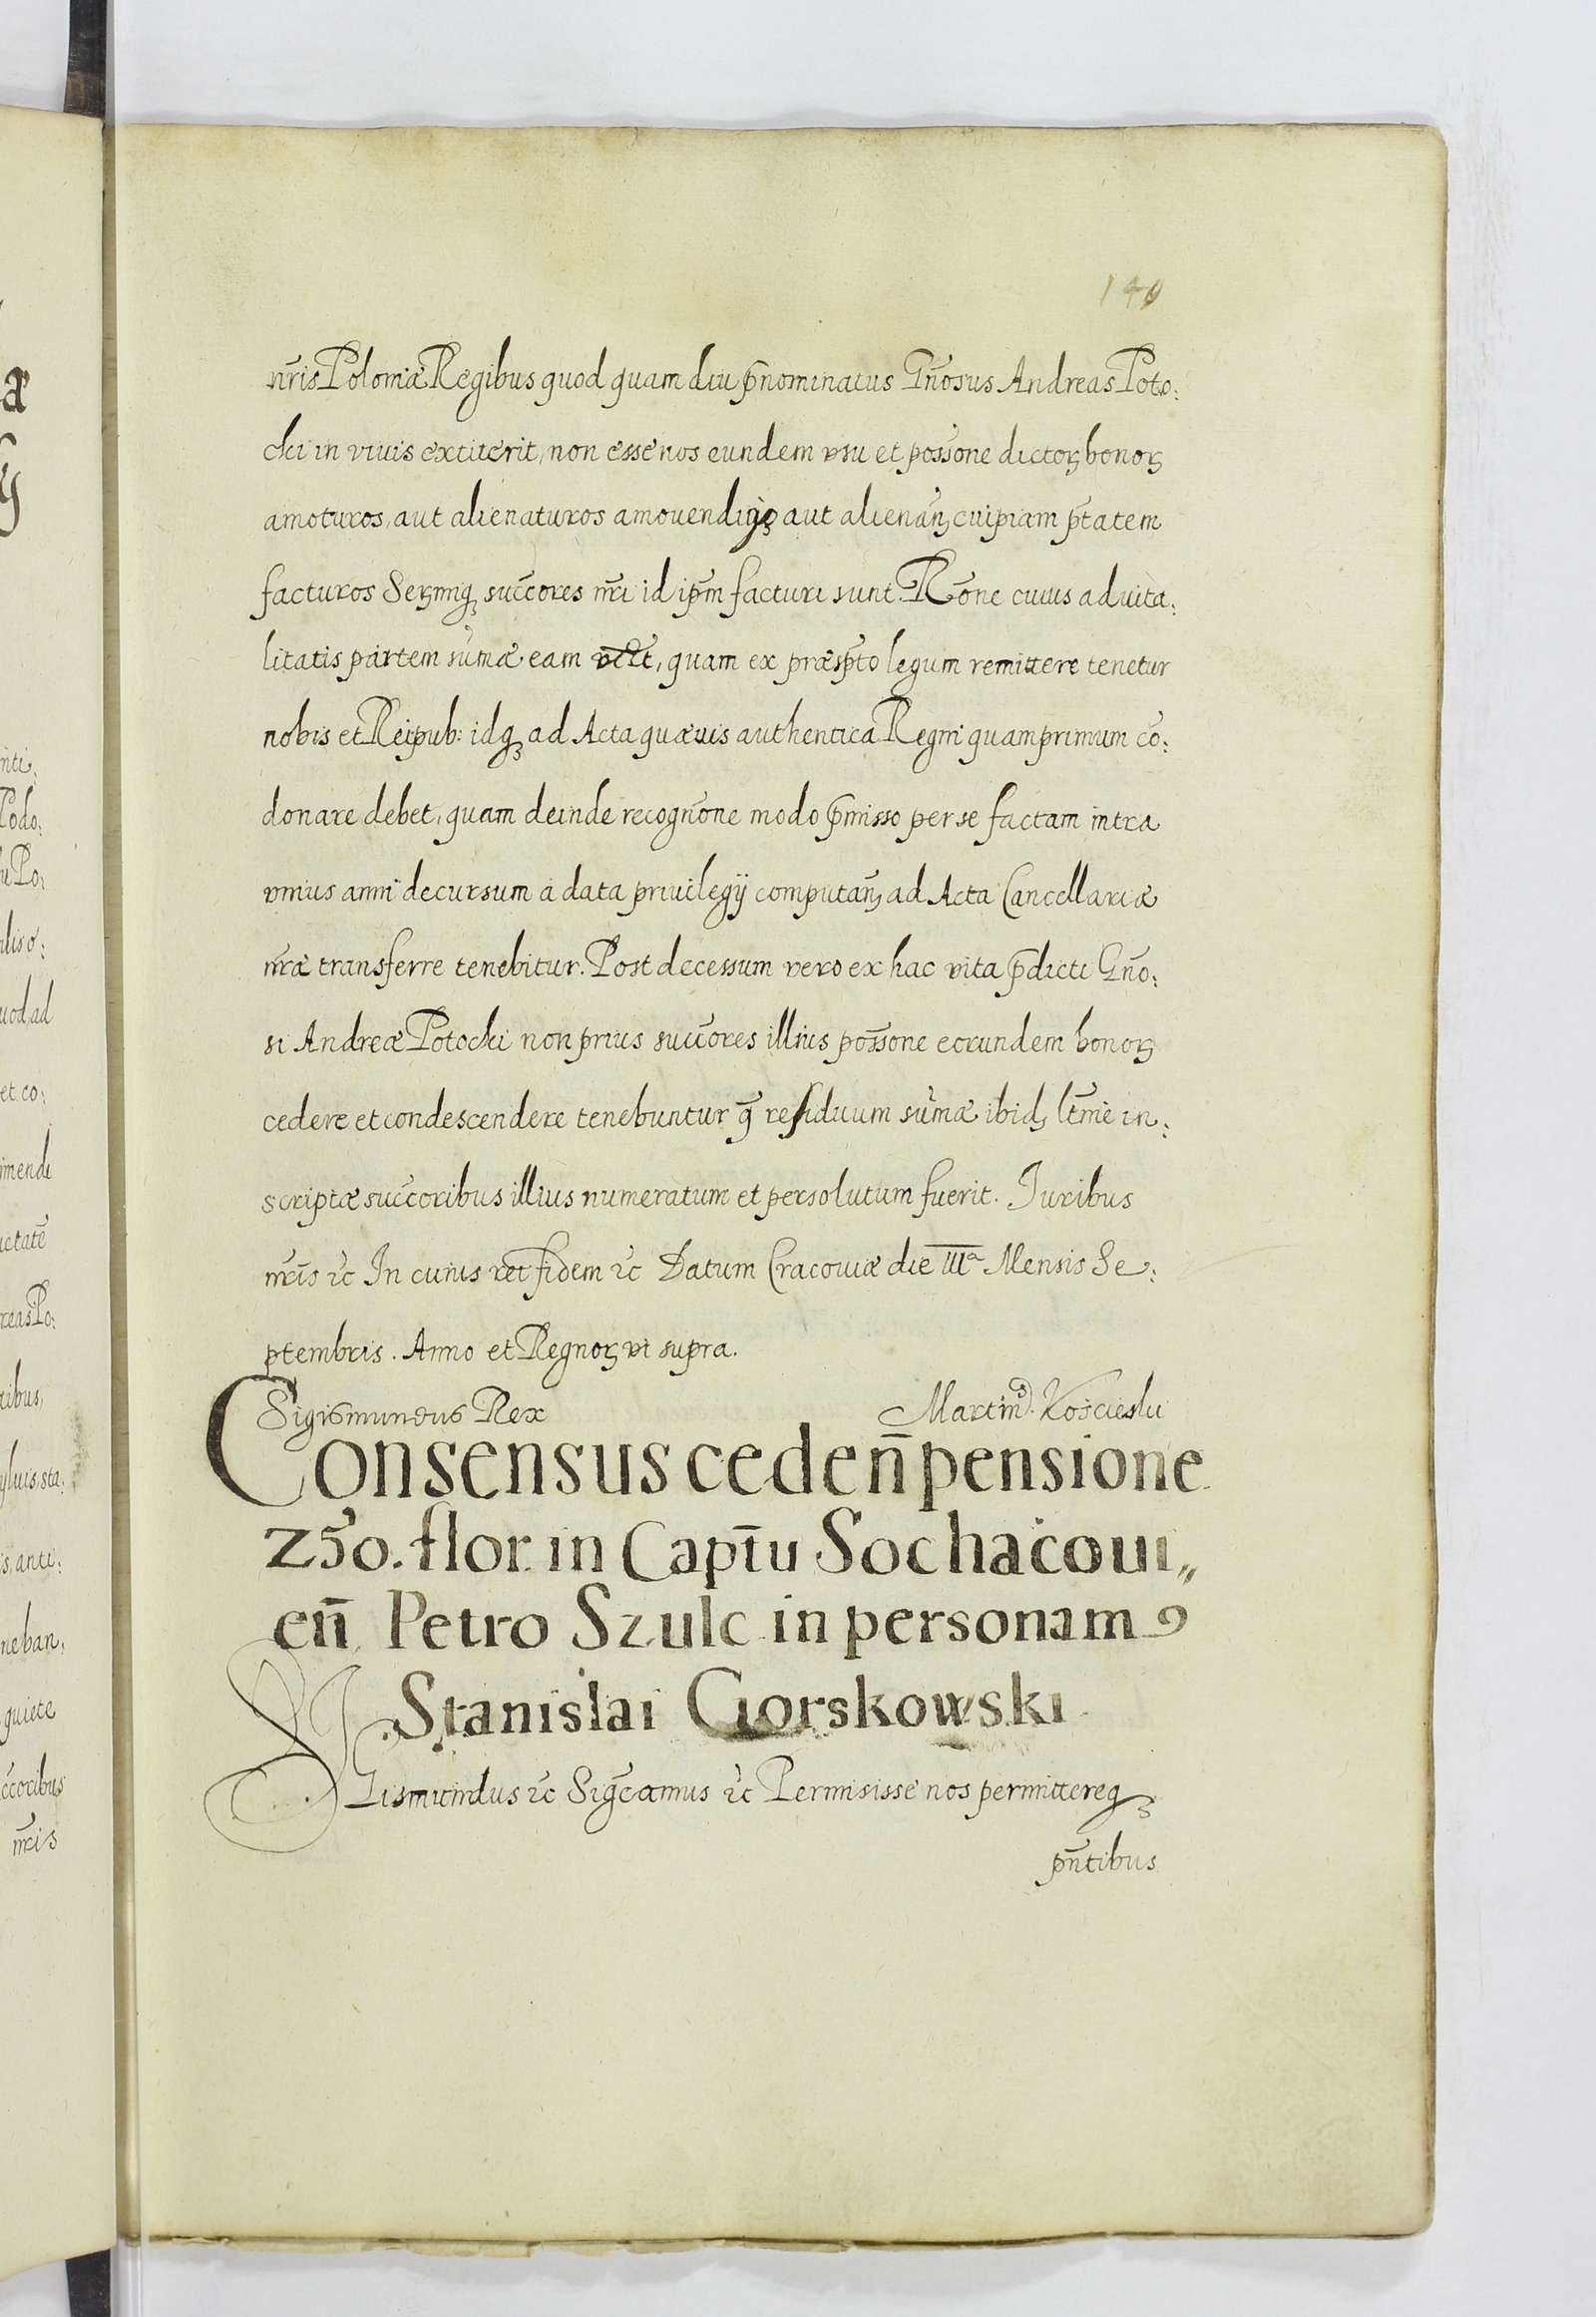 140
nr̃is Poloniæ Regibus quod quam diu p̃nominatus Gñosus Andreas Poto:
cki in viuis extiterit, non esse nos eundem vsu et possõne dictoꝝ bonoꝝ
amoturos, aut alienaturos amouendiqꝫ aut alienañ cuipiam p̃tatem
facturos Serm̃iqꝫ succ̃ores nr̃i id ip̃m facturi sunt. Rõne cuius aduita:
litatis partem sum̃æ eam, quam ex præsp̃to legum remittere tenetur
nobis et Reipub: idqꝫ ad Acta quæuis authentica Regni quamprimum cõ:
donare debet, quam deinde recogniõne modo p̃misso per se factam intra
vnius anni decursum a data priuilegij computañ ad Acta Cancellariæ
nr̃æ transferre tenebitur. Post decessum vero ex hac vita p̃dicti Gño:
si Andreæ Potocki non prius succ̃ores illius possõne eorundem bonoꝝ
cedere et condescendere tenebuntur q̃ residuum sum̃æ ibidꝫ lt̃ime in:
scriptæ succ̃oribus illius numeratum et persolutum fuerit. Iuribus
nr̃is ꝛc̃ In cuius rei fidem ꝛc̃ Datum Cracouiæ die IIIa Mensis Se:
ptembris. Anno et Regnoꝝ vt supra.
Sigismundus Rex Martinꝰ. Kościeslu
Consensus cedeñ pensione
250. flor. in Capt̃u Sochacoui„
eñ Petro Szulc in personam
Stanislai Gorskowski
SIgismundus ꝛc̃ Sigc̃amus ꝛc̃ Permisisse nos permittereqꝫ
pñtibus
nti.
Podo:
u Po:
uod, ad
et co:
imendi
ctatẽ
reas Po:
ribus,
sta:
is, anti:
neban,
quiete
c̃coribus
nr̃is